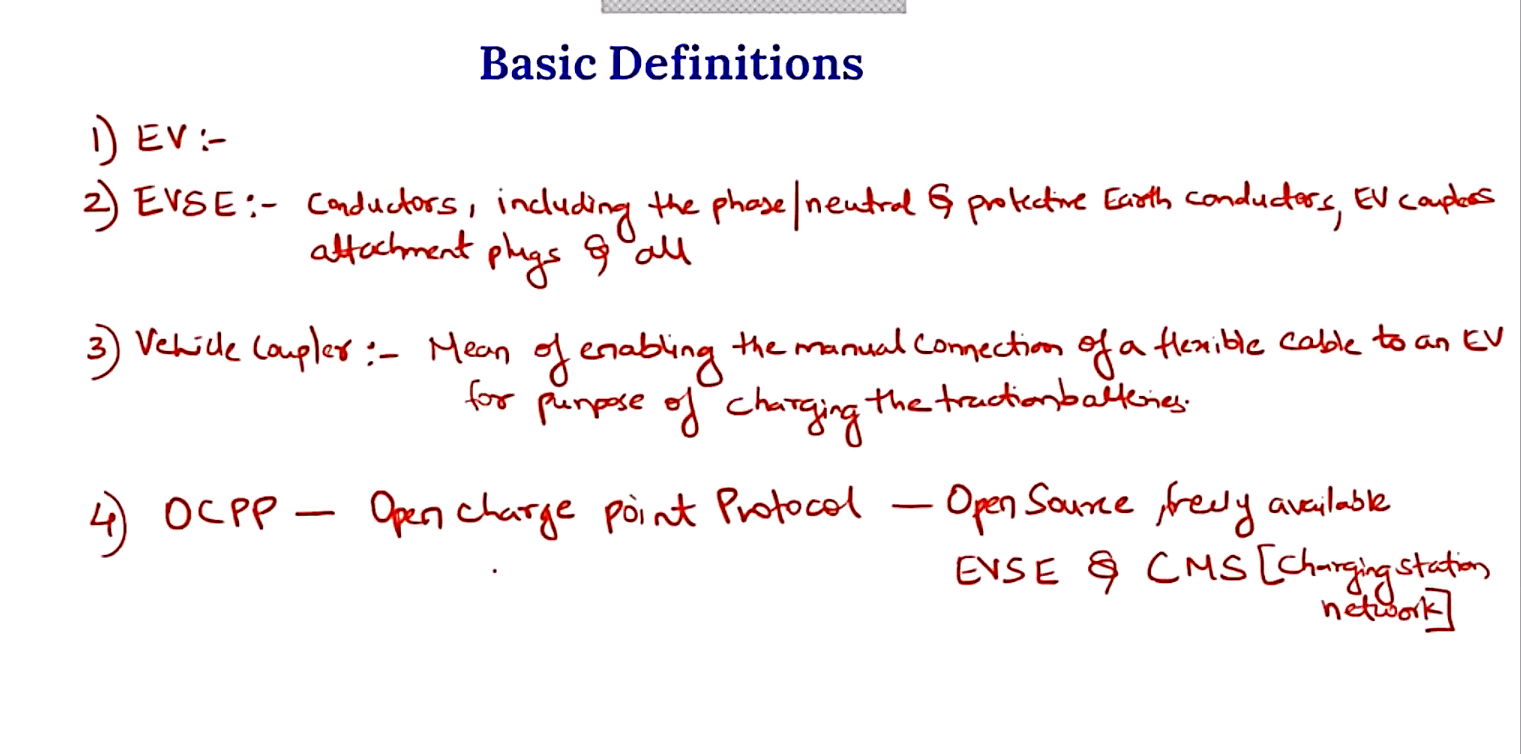 Basic Definitions
1) EV :-
2) EVSE :- Conductors, including the phase/neutral & protective Earth conductors, EV couplers
attachment plugs & all
3) Vehicle Coupler :- Mean of enabling the manual connection of a flexible cable to an EV
for purpose of charging the traction batteries.
4) OCPP — Open charge point Protocol — Open Source, freely available
EVSE & CMS [Charging station
network]